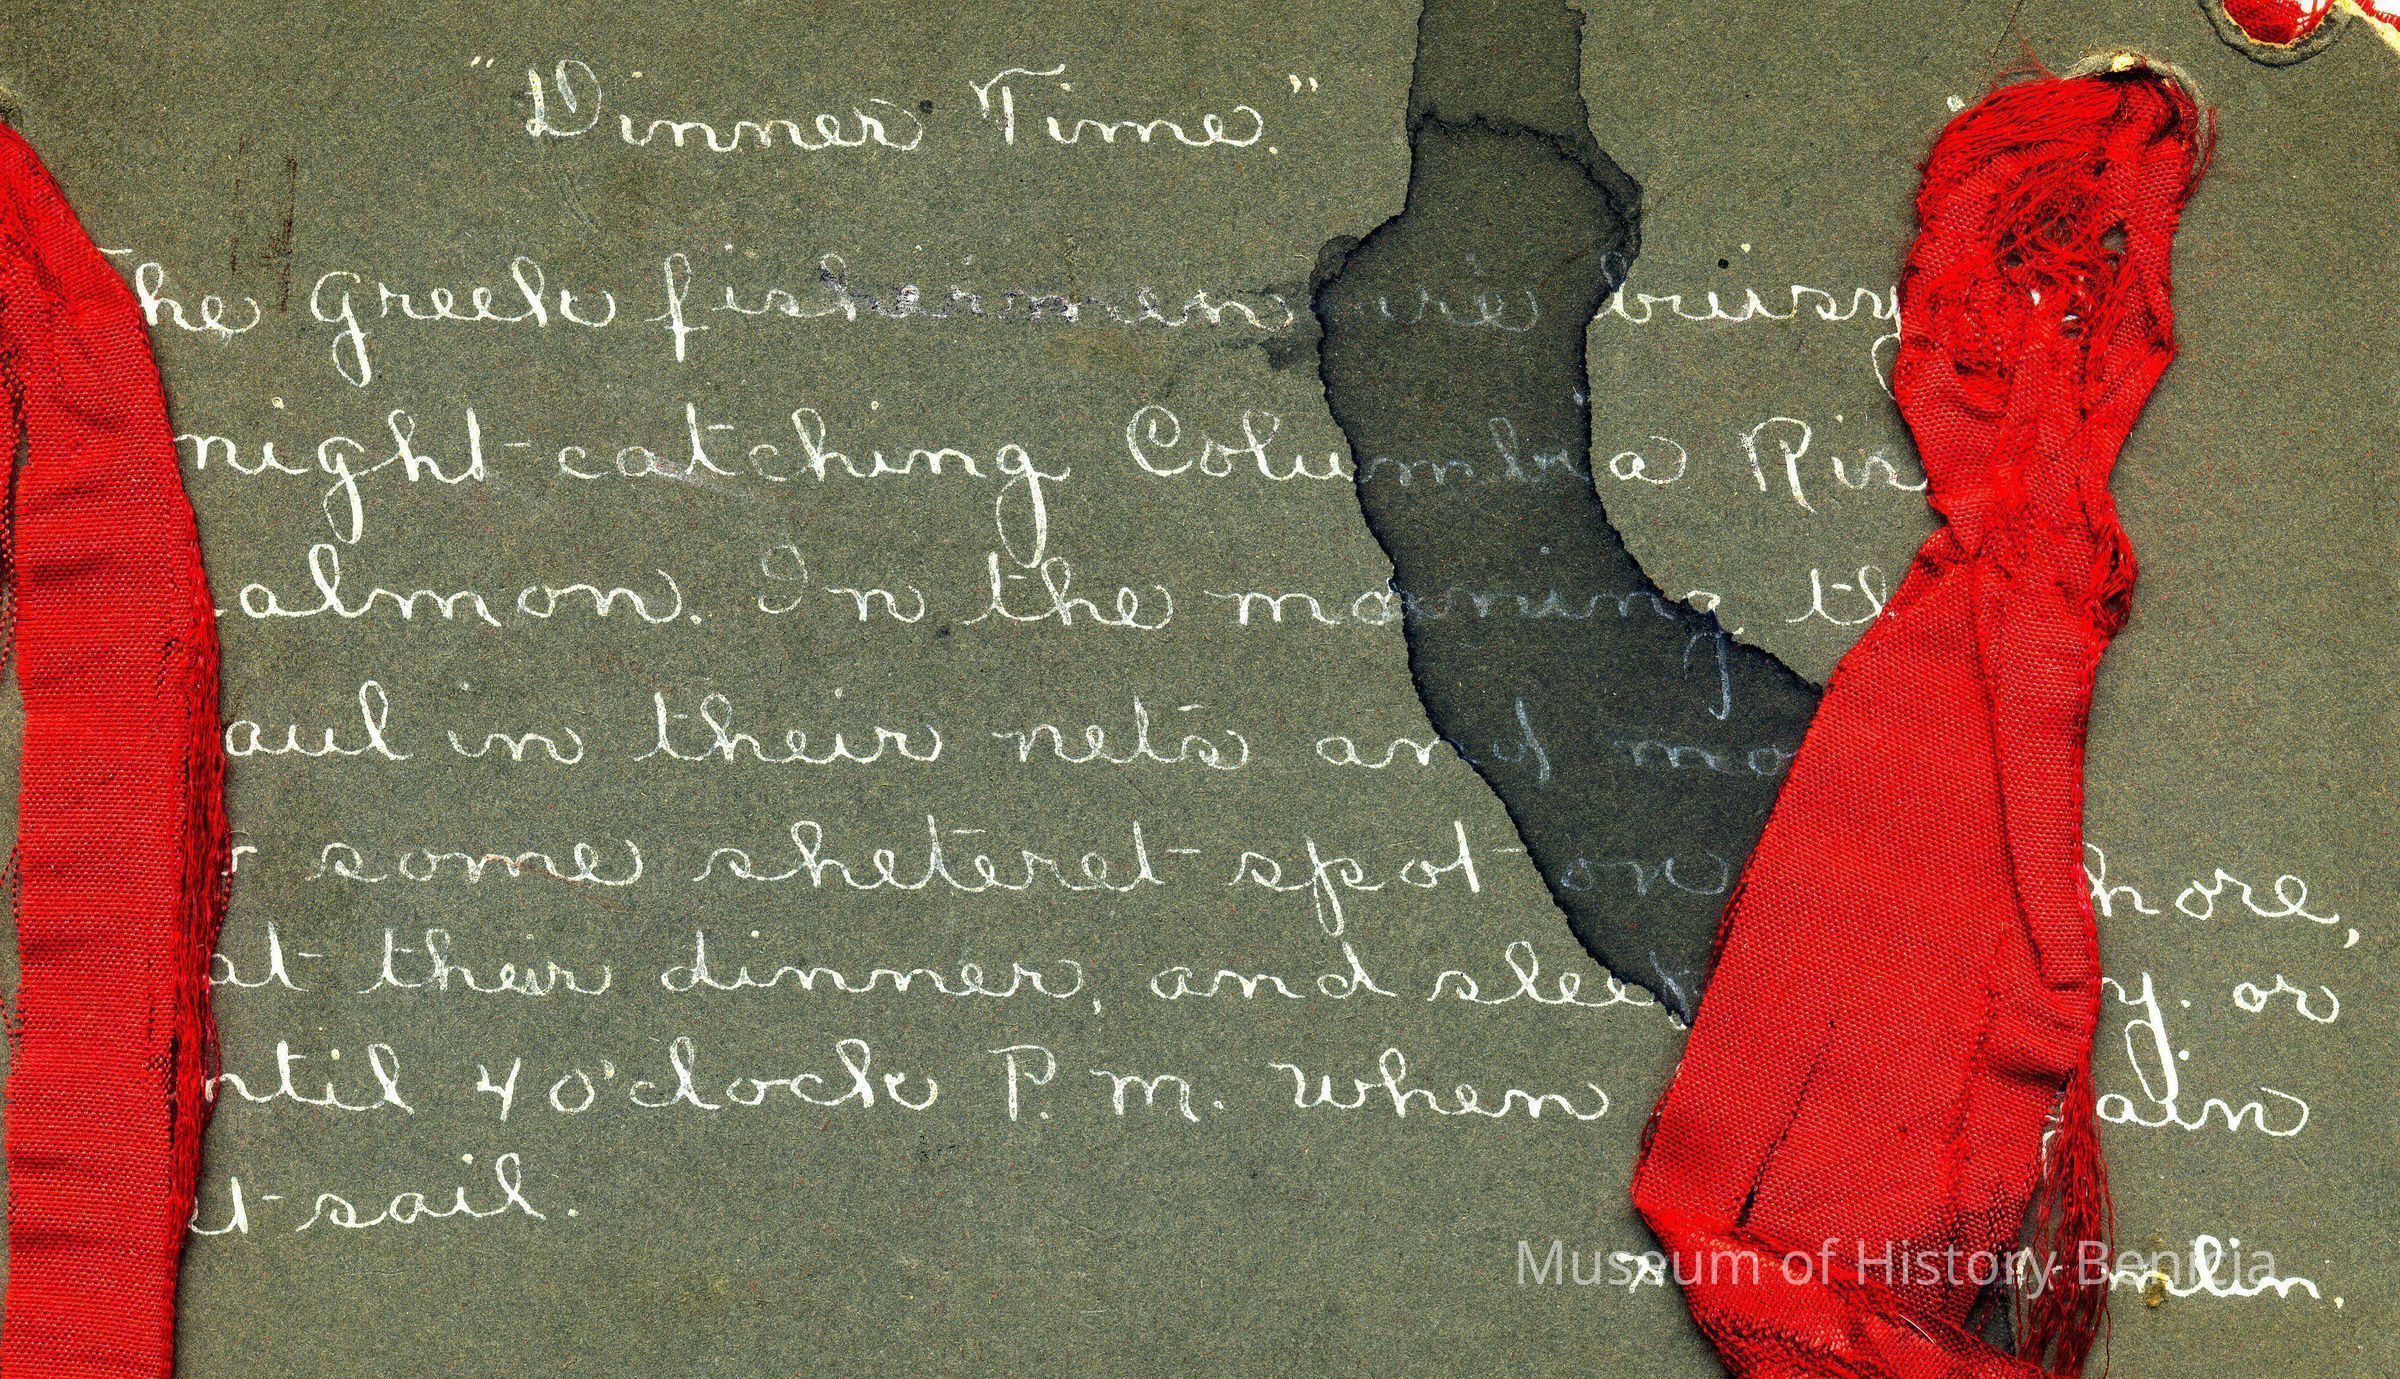 "Dinner Time."
The Greek fishermen are buisy
night-catching Columbia Riv
almon. In the morning th
aul in their nets and mo
some sheteret spot on hore,
at their dinner, and sleep y. or
ntil 4 o'clock P.M. when ain
t-sail.
mlin.
Museum of History Benicia